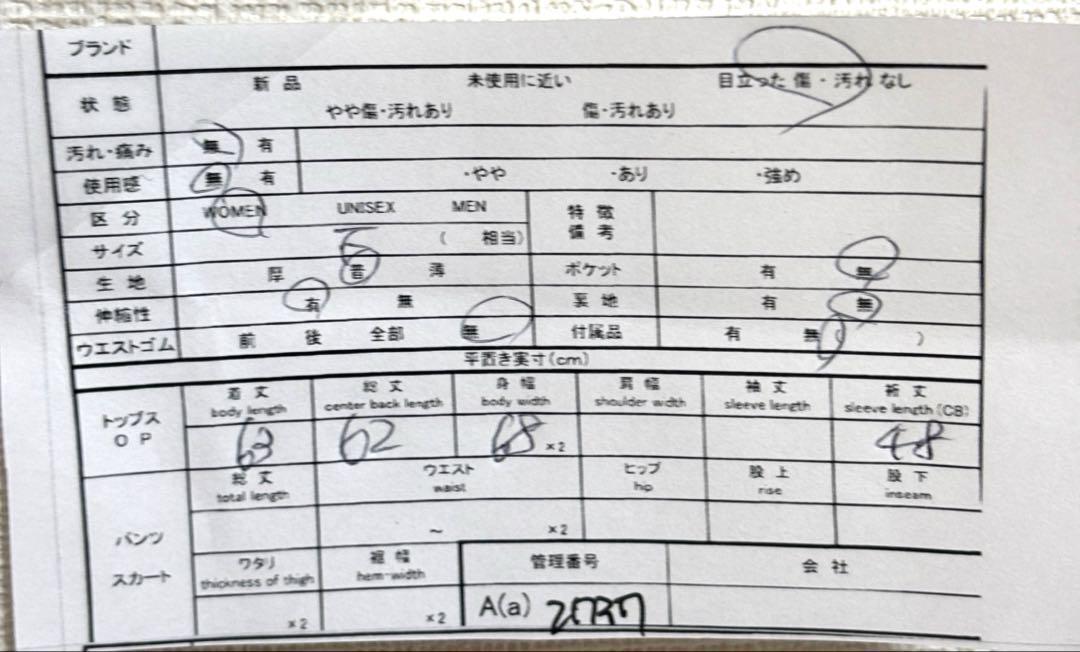 ブランド
状態 新品 未使用に近い 目立った傷・汚れなし
やや傷・汚れあり 傷・汚れあり
汚れ・痛み 無 有
使用感 無 有 ・やや ・あり ・強め
区分 WOMEN UNISEX MEN 特徴 備考
サイズ ( 相当)
生地 厚 普 薄 ポケット 有 無
伸縮性 有 無 裏地 有 無
ウエストゴム 前 後 全部 無 付属品 有 無 ( )
平置き実寸(cm)
トップス OP
着丈 総丈 身幅 肩幅 袖丈 裄丈
body length center back length body width shoulder width sleeve length sleeve length (CB)
63 62 68 ×2 48
パンツ スカート
総丈 ウエスト ヒップ 股上 股下
total length waist hip rise inseam
~ ×2
ワタリ 裾幅 管理番号 会社
thickness of thigh hem-width
×2 ×2 A(a)